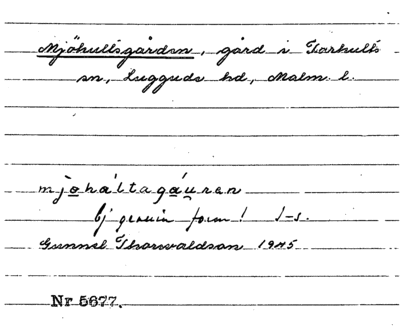 Mjöhultsgården, gård i Farhults
sn, Luggude hd, Malm. l.
mjo̲hàltagá̲u̲ran
Ej genuin form! I-s.
Gunnel Thorwaldson 1945
Nr 5677.